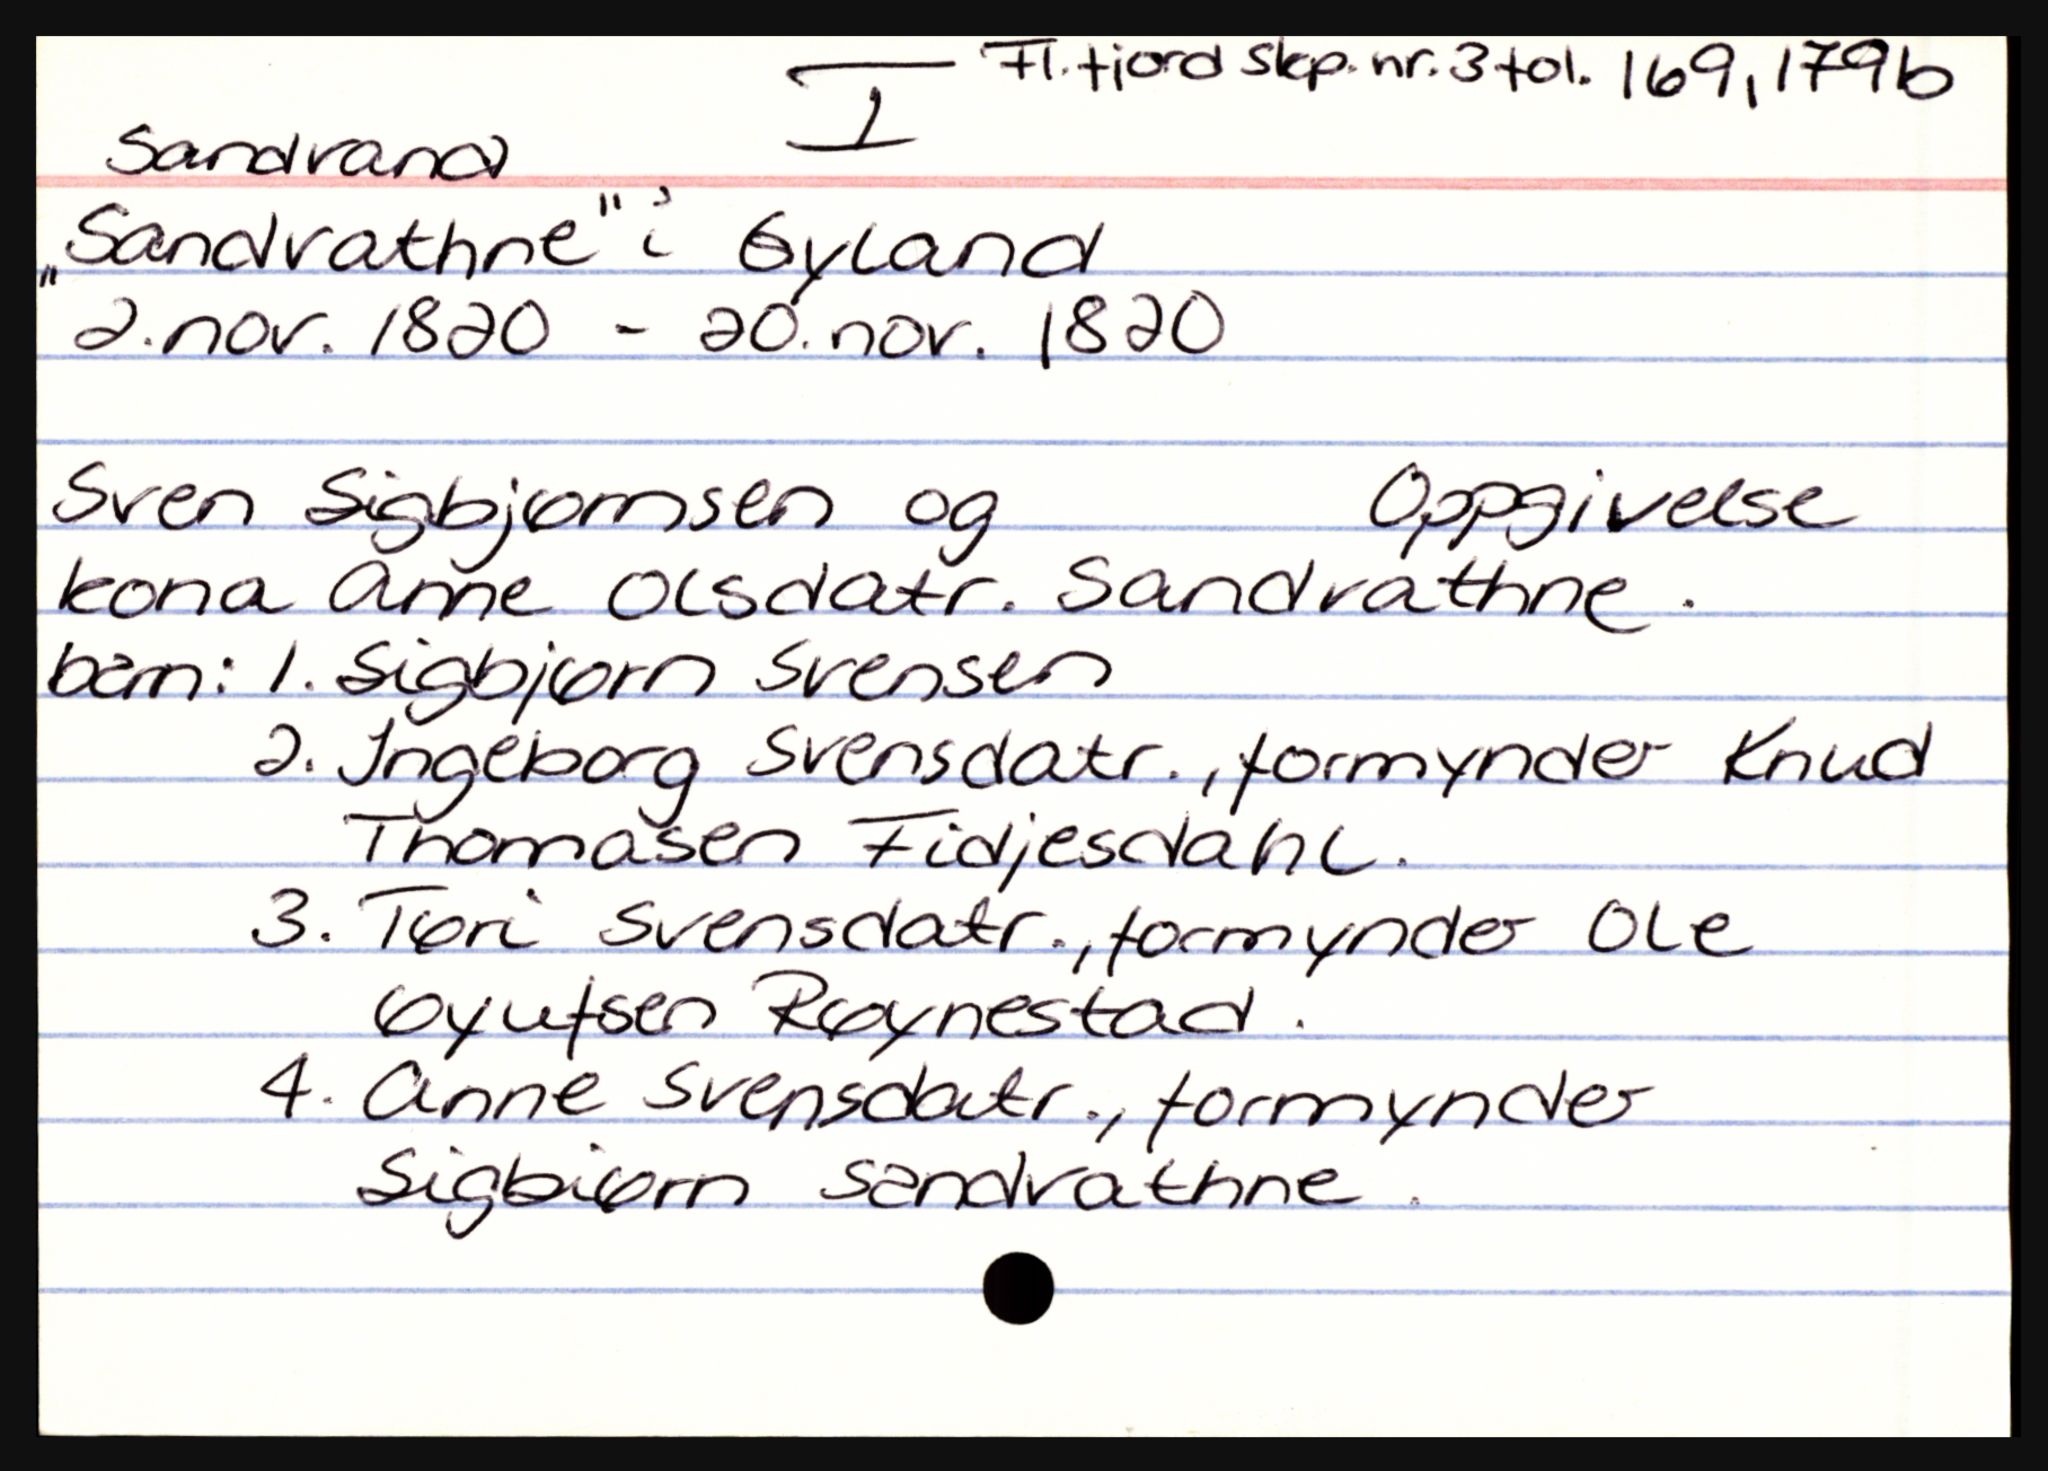 I Fl.fjord skp. nr. 3 fol. 169, 179b
Sandvand
„Sandvathne" i Gyland
2. nov. 1820 - 20. nov. 1820
Sven Sigbjørnsen og Oppgivelse
kona Anne Olsdatr. Sandvathne.
barn: 1. Sigbjørn Svensen
2. Ingeborg Svensdatr., formynder Knud
Thomasen Fidjesdahl.
3. Tøri Svensdatr., formynder Ole
Øyufsen Røynestad.
4. Anne Svensdatr., formynder
Sigbiørn Sandvathne.